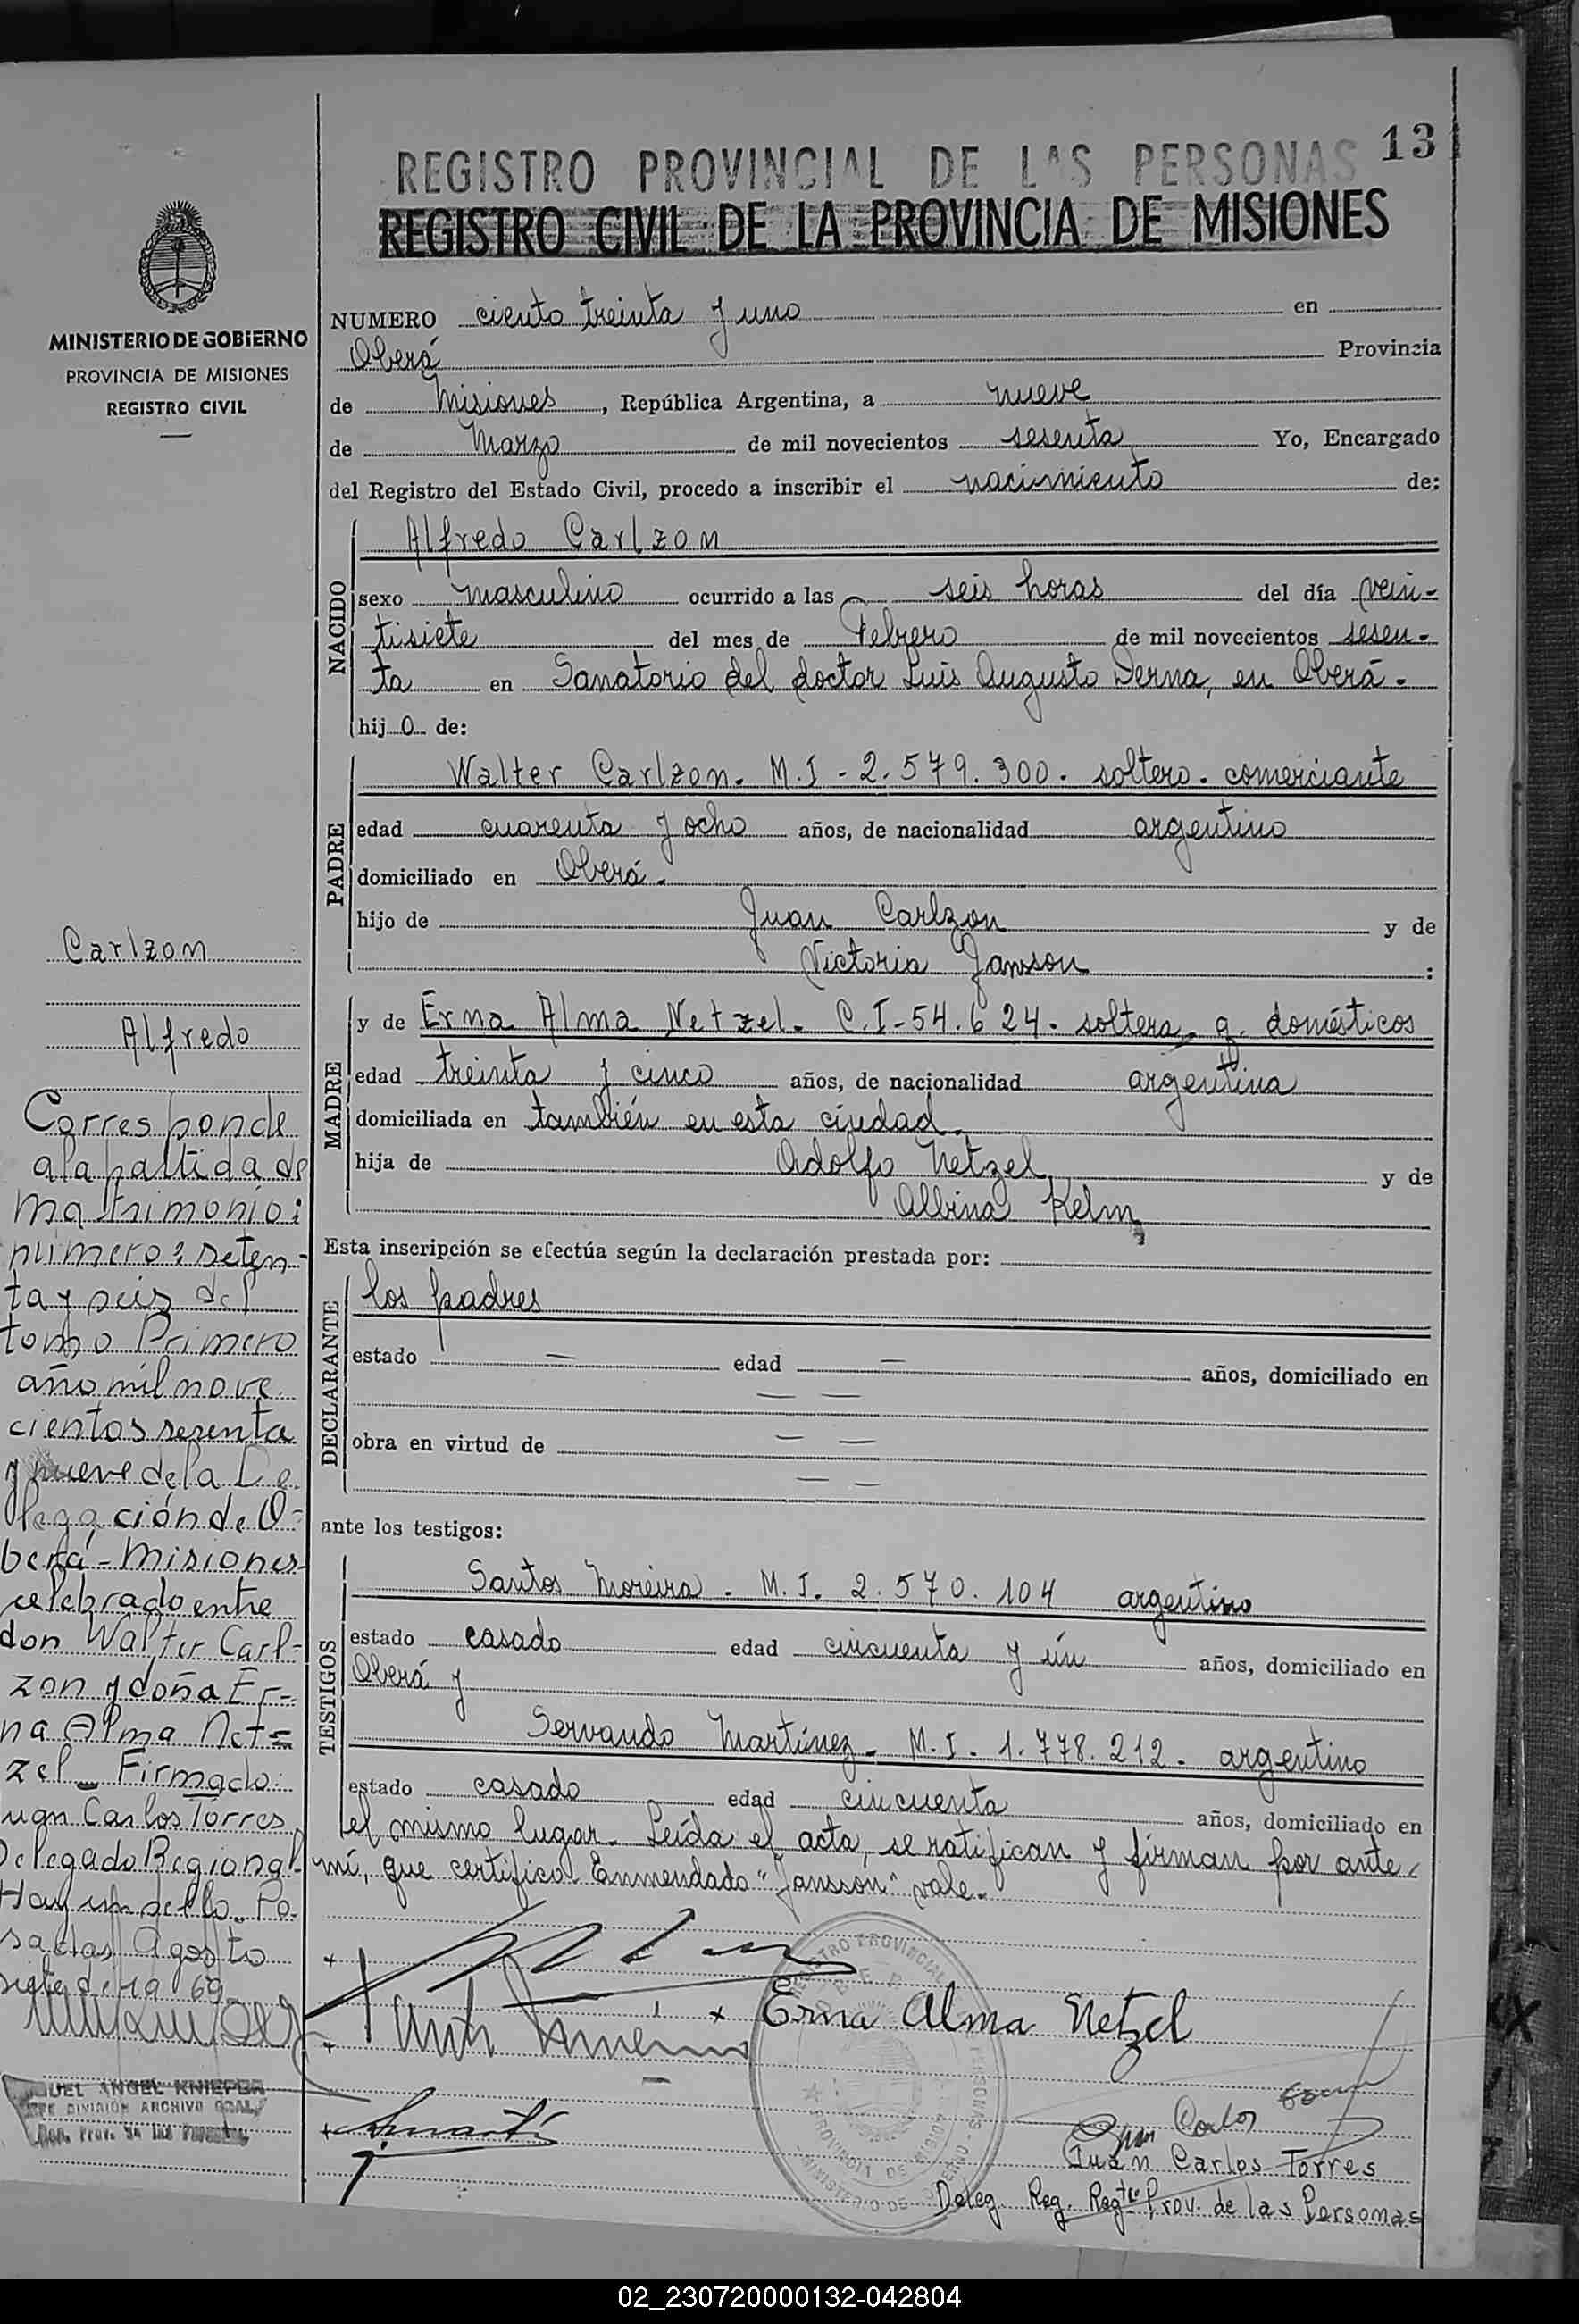 13
REGISTRO PROVINCIAL DE LAS PERSONAS
REGISTRO CIVIL DE LA PROVINCIA DE MISIONES
MINISTERIO DE GOBIERNO
PROVINCIA DE MISIONES
REGISTRO CIVIL
NUMERO ciento treinta y uno en
Oberá Provincia
de Misiones, República Argentina, a nueve
de Marzo de mil novecientos sesenta Yo, Encargado
del Registro del Estado Civil, procedo a inscribir el nacimiento de:
NACIDO
Alfredo Carlzon
sexo masculino ocurrido a las seis horas del día vein-
tisiete del mes de Febrero de mil novecientos sesen-
ta en Sanatorio del doctor Luis Augusto Derna, en Oberá.
hijo de:
PADRE
Walter Carlzon. M.I - 2.579.300. soltero. comerciante
edad cuarenta y ocho años, de nacionalidad argentino
domiciliado en Oberá.
hijo de Juan Carlzon y de
Victoria Jansson :
MADRE
y de Erna Alma Netzel. C.I-54.624. soltera. q. domésticos
edad treinta y cinco años, de nacionalidad argentina
domiciliada en también en esta ciudad.
hija de Adolfo Netzel y de
Albina Kelm
Esta inscripción se efectúa según la declaración prestada por:
DECLARANTE
los padres
estado — edad — años, domiciliado en
— —
obra en virtud de — —
— —
ante los testigos:
TESTIGOS
Santos Moreira. M.I. 2.570.104 argentino
estado casado edad cincuenta y ún años, domiciliado en
Oberá y
Servando Martínez. M.I. 1.778.212. argentino
estado casado edad cincuenta años, domiciliado en
el mismo lugar. Leída el acta, se ratifican y firman por ante
mí, que certifico. Enmendado "Jansson" vale.
Erna Alma Netzel
Juan Carlos Torres
Deleg. Reg. Regtº Prov. de las Personas
REGISTRO PROVINCIAL
PROVINCIA DE MISIONES
MINISTERIO DE GOBIERNO
Carlzon
Alfredo
Corresponde
a la partida de
matrimonio:
número: seten-
ta y seis del
tomo Primero
año mil nove
cientos sesenta
y nueve de la De
legación de O-
berá - Misiones
celebrado entre
don Walter Carl-
zon y doña Er-
na Alma Net=
zel _ Firmado:
uan Carlos Torres
Delegado Regional-
Hay un sello. Po-
sadas Agosto
siete de 1969-
MIGUEL ANGEL KNIEPER
JEFE DIVISIÓN ARCHIVO GRAL.
02_230720000132-042804